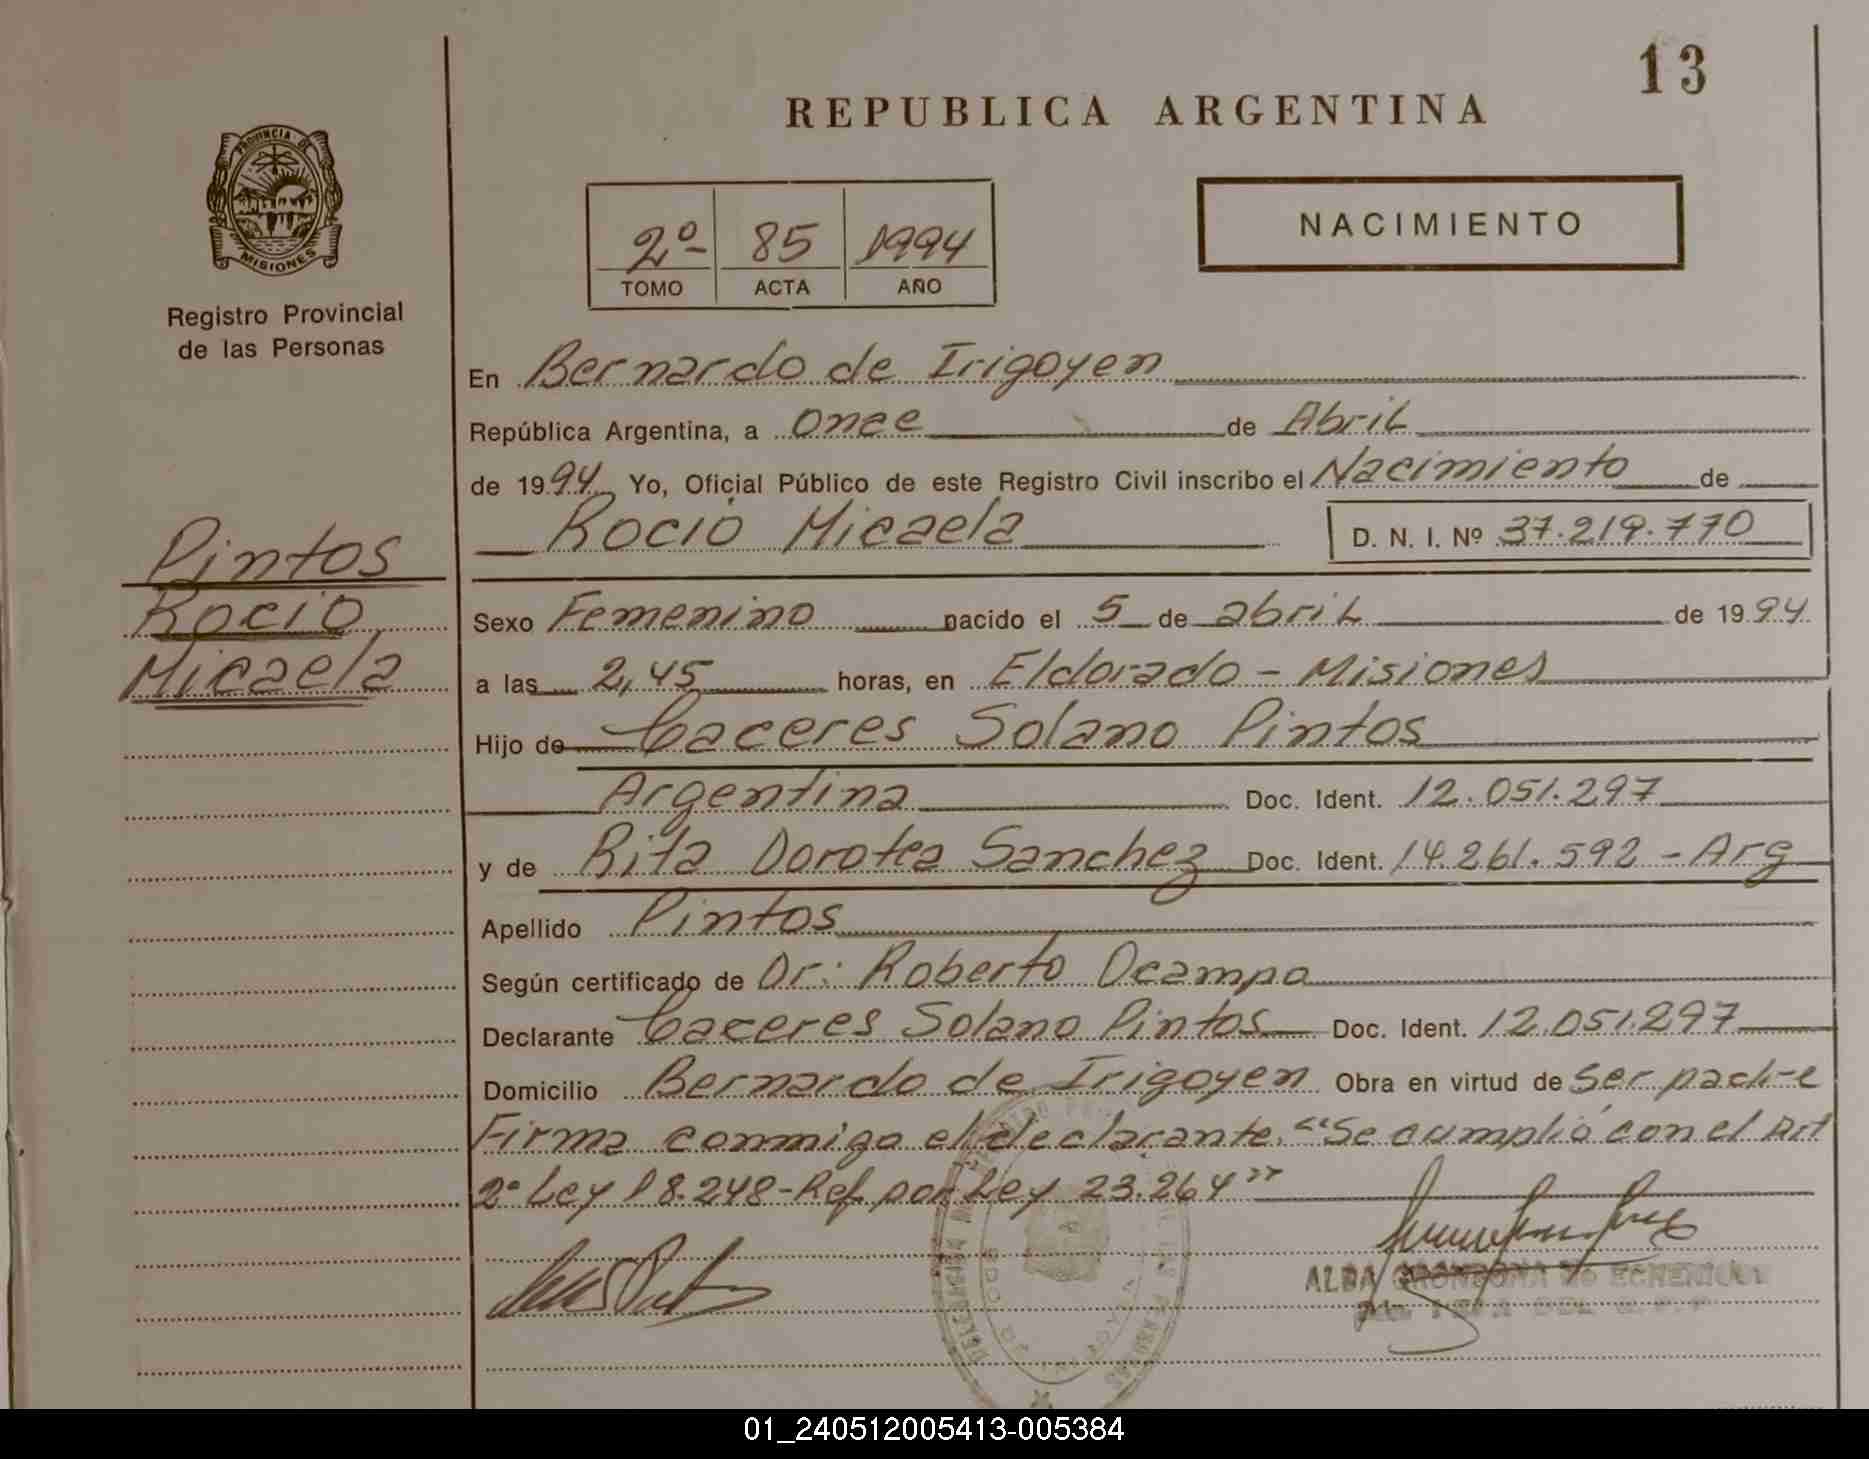 13
REPUBLICA ARGENTINA
PROVINCIA DE
MISIONES
Registro Provincial
de las Personas
2º 85 1994
TOMO ACTA AÑO
NACIMIENTO
En Bernardo de Irigoyen
República Argentina, a once de Abril
de 1994 Yo, Oficial Público de este Registro Civil inscribo el Nacimiento de
Rocio Micaela D. N. I. Nº 37.219.770
Pintos
Rocio
Micaela
Sexo Femenino nacido el 5 de abril de 1994
a las 2,45 horas, en Eldorado - Misiones
Hijo de Caceres Solano Pintos
Argentina Doc. Ident. 12.051.297
y de Rita Dorotea Sanchez Doc. Ident. 14.261.592 - Arg
Apellido Pintos
Según certificado de Dr: Roberto Ocampo
Declarante Caceres Solano Pintos Doc. Ident. 12.051.297
Domicilio Bernardo de Irigoyen Obra en virtud de ser padre
Firma conmigo el declarante. "Se cumplió con el Art
2º Ley 18.248-Ref por Ley 23.264"
ALBA
01_240512005413-005384